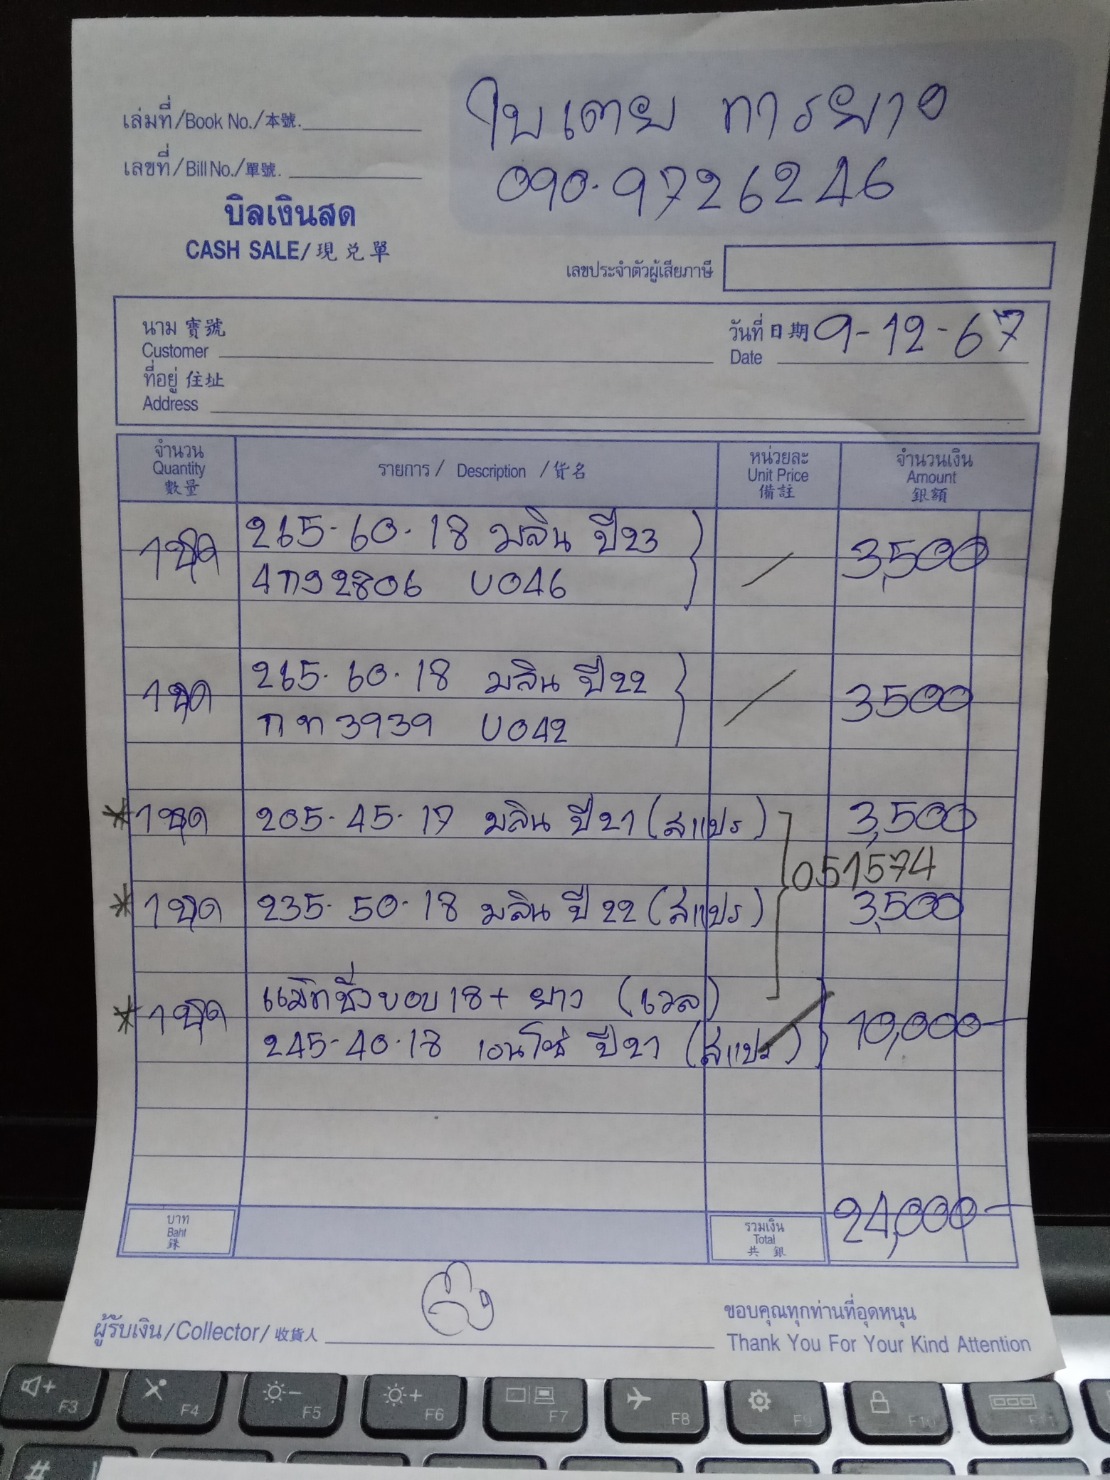 เล่มที่/Book No./本號.
ใบเตย การยาง
เลขที่/Bill No./單號.
090-9726246
บิลเงินสด
CASH SALE/現兌單
เลขประจำตัวผู้เสียภาษี
นาม 寶號
Customer
วันที่ 日期 9-12-67
Date
ที่อยู่ 住址
Address
จำนวน
Quantity
數量
รายการ / Description / 貨名
หน่วยละ
Unit Price
備註
จำนวนเงิน
Amount
銀額
1ชุด 265-60-18 มลิน ปี23 3,500
4กว2806 U046
1ชุด 265-60-18 มลิน ปี22 3500
กท3939 U042
*1ชุด 205-45-17 มลิน ปี21 (สแปร) 3,500
051574
*1ชุด 235-50-18 มลิน ปี22 (สแปร) 3,500
*1ชุด ขอบ18+ ยาง (เวล) 10,000-
245-40-18 ปี21 (สแปร)
บาท
Baht
銖
รวมเงิน
Total
共銀
24,000-
ผู้รับเงิน/Collector/收貨人
ขอบคุณทุกท่านที่อุดหนุน
Thank You For Your Kind Attention
F3
F4
F5
F6
F7
F8
F9
F10
#